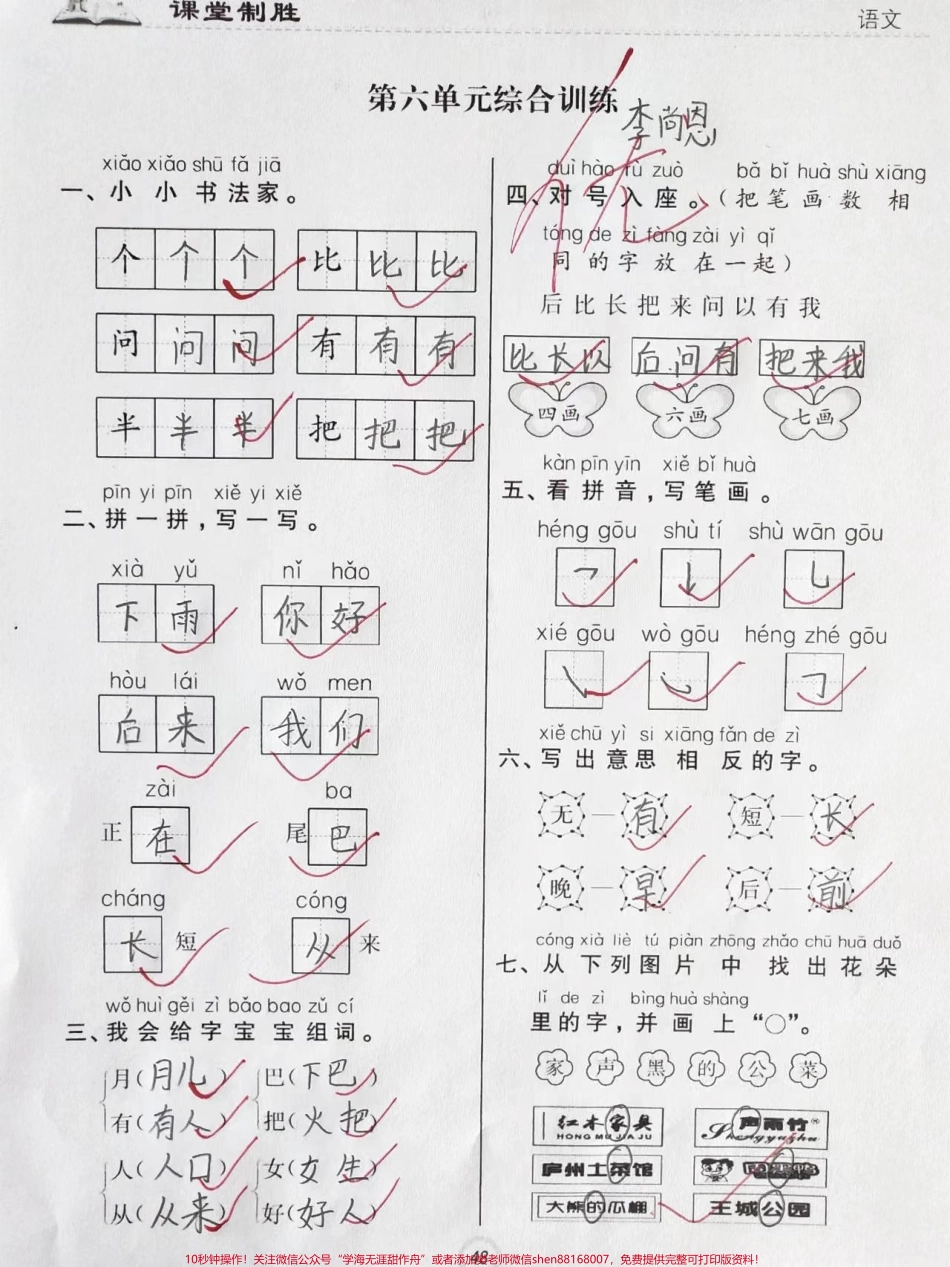 课堂制胜
语文
第六单元综合训练
李尚恩
xiǎo xiǎo shū fǎ jiā
一、小 小 书 法 家。
个 个 个 比 比 比
问 问 问 有 有 有
半 半 半 把 把 把
pīn yi pīn xiě yi xiě
二、拼 一 拼，写 一 写。
xià yǔ nǐ hǎo
下 雨 你 好
hòu lái wǒ men
后 来 我 们
zài ba
正 在 尾 巴
cháng cóng
长 短 从 来
wǒ huì gěi zì bǎo bao zǔ cí
三、我 会 给 字 宝 宝 组 词。
月（月儿） 巴（下巴）
有（有人） 把（火把）
人（人口） 女（女生）
从（从来） 好（好人）
duì hào rù zuò bǎ bǐ huà shù xiāng
四、对 号 入 座。（把 笔 画 数 相
tóng de zì fàng zài yì qǐ
同 的 字 放 在 一 起）
后 比 长 把 来 问 以 有 我
比长以 后问有 把来我
四画 六画 七画
kàn pīn yīn xiě bǐ huà
五、看 拼 音，写 笔 画。
héng gōu shù tí shù wān gōu
xié gōu wò gōu héng zhé gōu
xiě chū yì si xiāng fǎn de zì
六、写 出 意 思 相 反 的 字。
无 — 有 短 — 长
晚 — 早 后 — 前
cóng xià liè tú piàn zhōng zhǎo chū huā duǒ
七、从 下 列 图 片 中 找 出 花 朵
lǐ de zì bìng huà shàng
里 的 字，并 画 上 “○”。
家 声 黑 的 公 菜
红木家具 声雨竹®
HONG MU JIA JU Shengyuzhu
庐州土菜馆
大熊的瓜棚 王城公园
48
10秒钟操作！关注微信公众号“学海无涯甜作舟”或者添加老师微信shen88168007，免费提供完整可打印版资料！